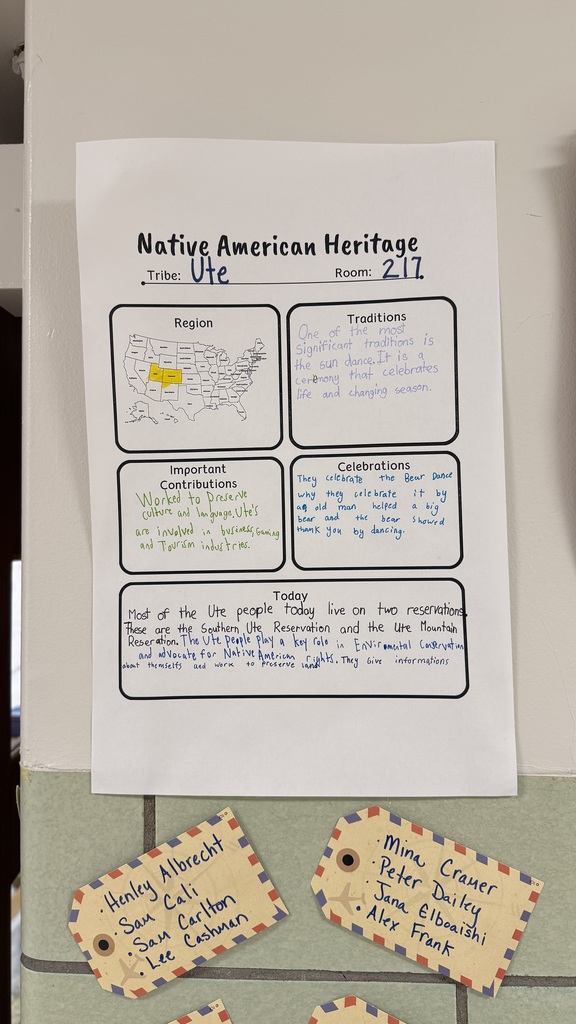 Native American Heritage
Tribe: Ute Room: 217
Region
Traditions
One of the most
significant traditions is
the sun dance. It is a
ceremony that celebrates
life and changing season.
Important
Contributions
Worked to Preserve
culture and language. Ute's
are involved in business, Gaming
and Tourism industries.
Celebrations
They celebrate the Bear Dance
why they celebrate it by
an old man helped a big
bear and the bear showed
thank you by dancing.
Today
Most of the Ute people today live on two reservations.
These are the Southern Ute Reservation and the Ute Mountain
Reseration. The Ute People Play a key role in Envirmental Conservation
and advocate for Native American rights. They Give informations
about themselfs and work to preserve land
· Henley Albrecht
· Sam Cali
· Sam Carlton
· Lee Cashman
· Mina Cramer
· Peter Dailey
· Jana Elboaishi
· Alex Frank